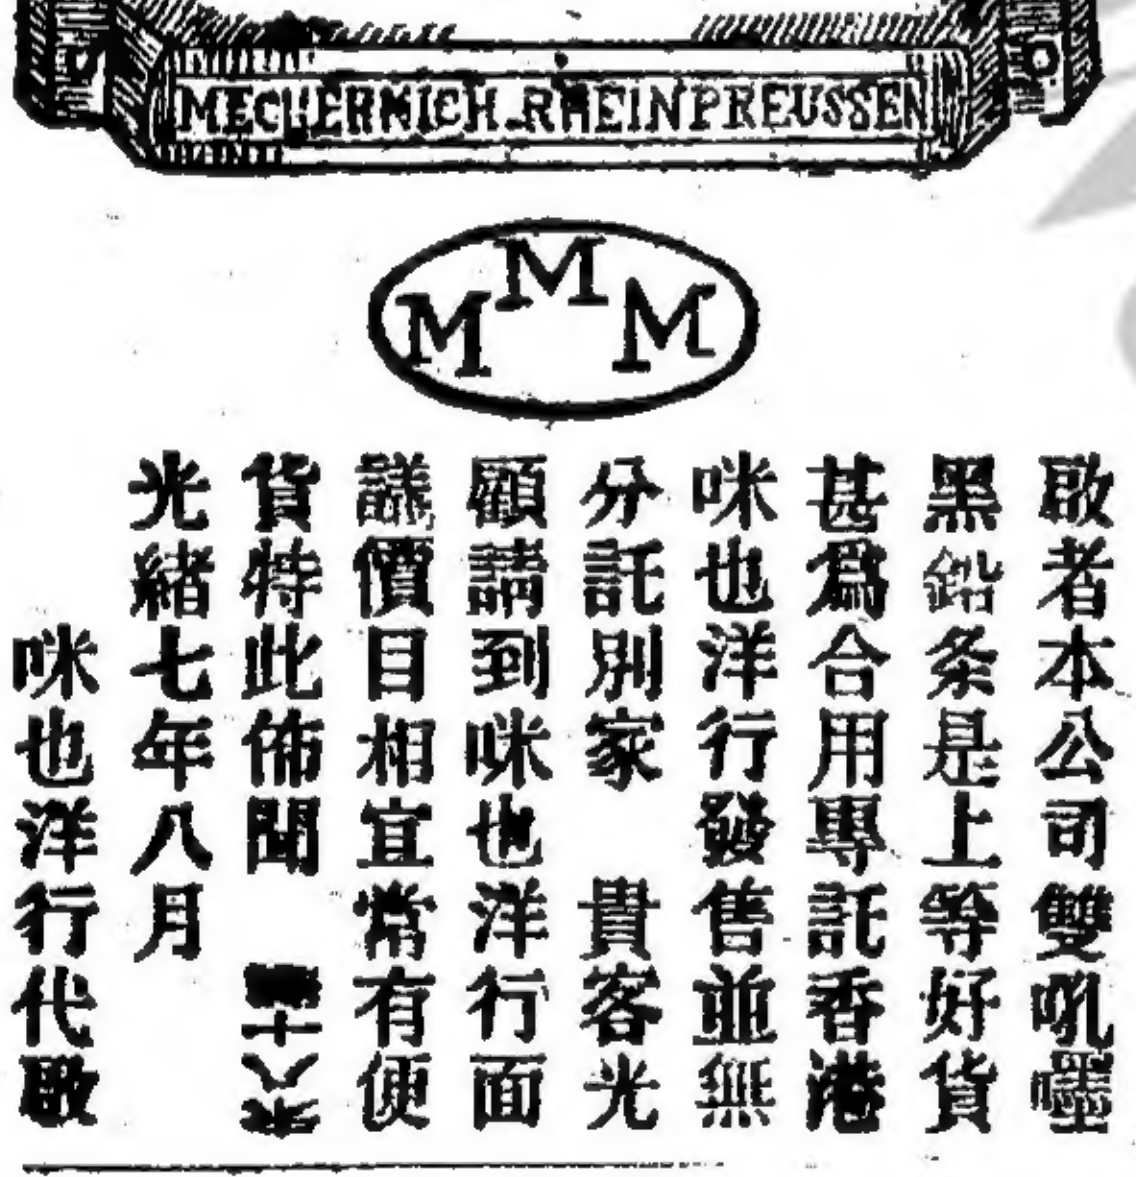 MECHERNICH RHEINPREUSSEN
M M M
啟者本公司雙吼嚜
黑鉛条是上等好貨
甚爲合用專託香港
咪也洋行發售並無
分託別家　貴客光
顧請到咪也洋行面
議價目相宜常有便
貨特此佈聞
光緒七年八月
咪也洋行代啟